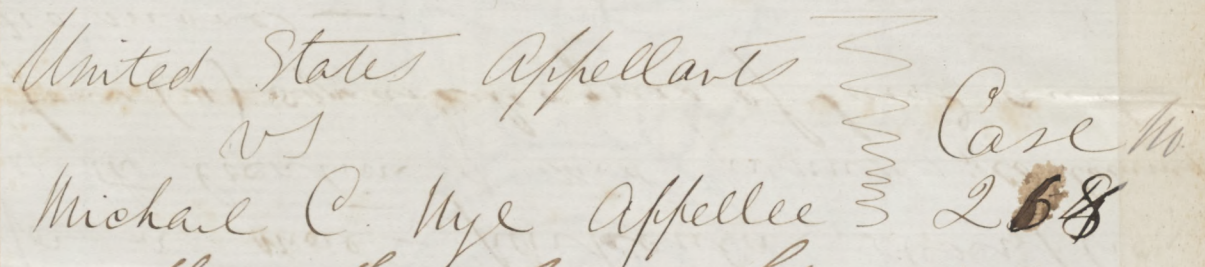 United States Appellants
vs
Michael C. Nye Appellee
Case No.
268